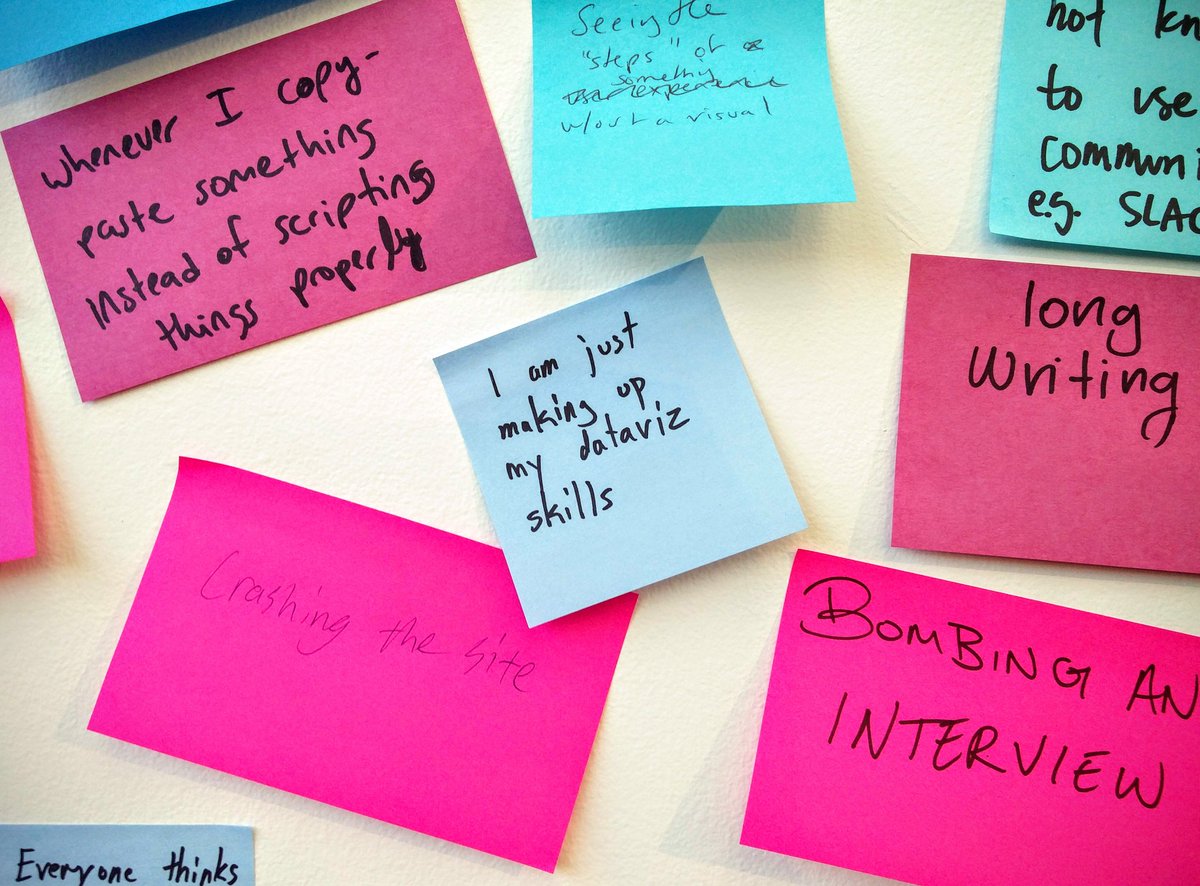 whenever I copy-
paste something
instead of scripting
things properly
Seeing the
"steps" of
somethg
w/out a visual
not kn
to use
communi
e.g. SLAC
I am just
making up
my dataviz
skills
long
writing
Crashing the site
BOMBING AN
INTERVIEW
Everyone thinks